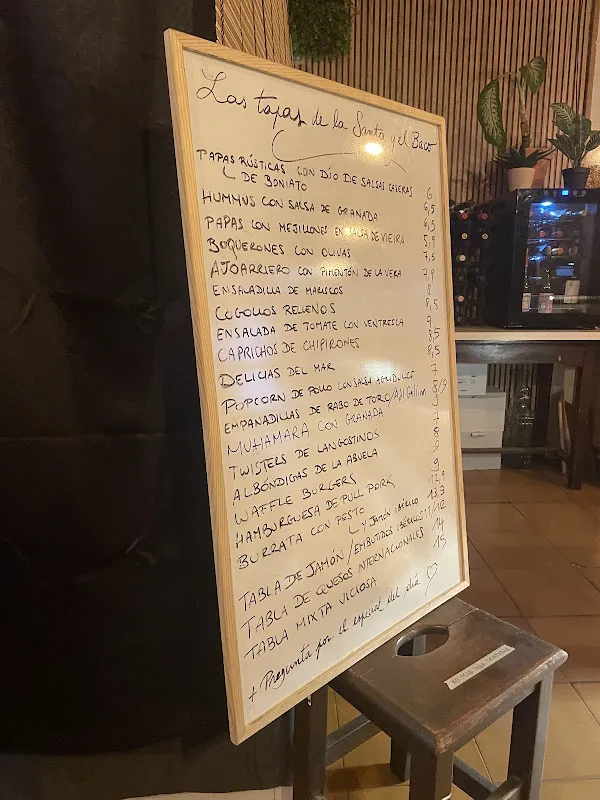 Las tapas de la Santa y el Baco
PAPAS RÚSTICAS CON DÚO DE SALSAS CASERAS 6
DE BONIATO 6,5
HUMMUS CON SALSA DE GRANADA 6,5
PAPAS CON MEJILLONES EN SALSA DE VIEIRA 5,9
BOQUERONES CON OLIVAS 7,5
AJOARRIERO CON PIMENTÓN DE LA VERA 7,9
ENSALADILLA DE MARISCOS 8
COGOLLOS RELLENOS 8,5
ENSALADA DE TOMATE CON VENTRESCA 9
CAPRICHOS DE CHIPIRONES 8,5
DELICIAS DEL MAR 8,5
POPCORN DE POLLO CON SALSA AGRIDULCE 7
EMPANADILLAS DE RABO DE TORO/Ají Gallina 8/9
MUHAMARA CON GRANADA
TWISTERS DE LANGOSTINOS
ALBÓNDIGAS DE LA ABUELA 8
WAFFLE BURGERS 9
HAMBURGUESA DE PULL PORK 9
BURRATA CON PESTO 12,9
Y JAMÓN IBÉRICO 13,3
TABLA DE JAMÓN/EMBUTIDOS IBÉRICOS 11/12
TABLA DE QUESOS INTERNACIONALES 14
TABLA MIXTA VICIOSA 15
+ Pregunta por el especial del día ♡